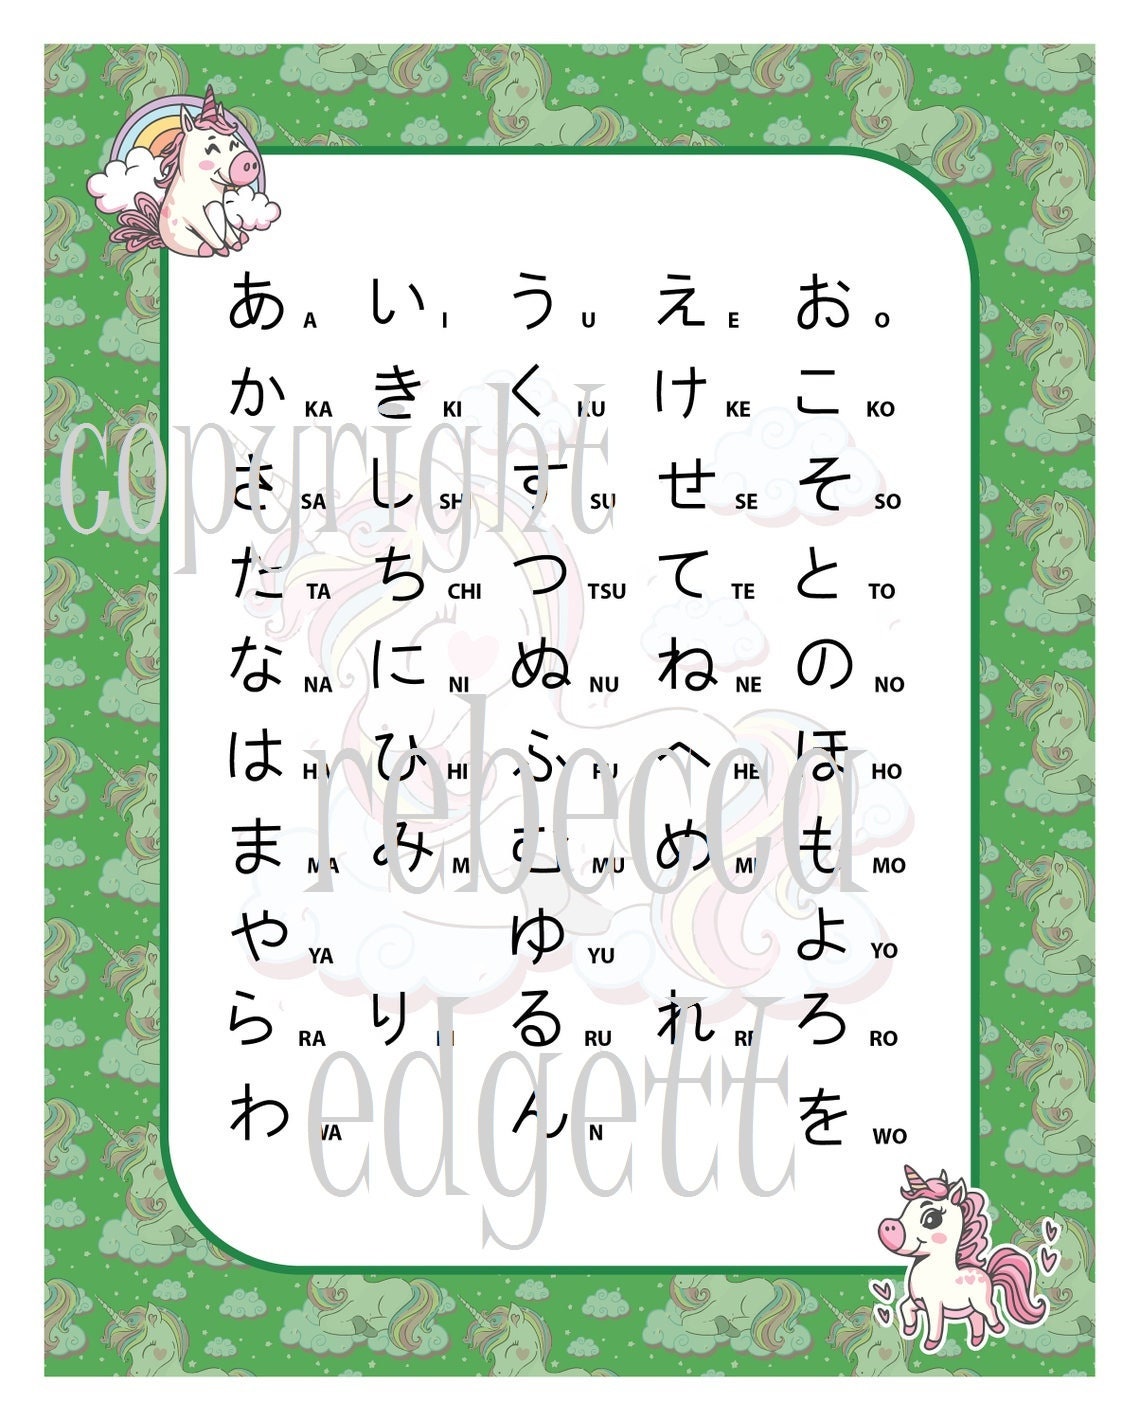 あ A い I う U え E お O
か KA き KI く KU け KE こ KO
さ SA し SHI す SU せ SE そ SO
た TA ち CHI つ TSU て TE と TO
な NA に NI ぬ NU ね NE の NO
は HA ひ HI ふ FU へ HE ほ HO
ま MA み MI む MU め ME も MO
や YA ゆ YU よ YO
ら RA り RI る RU れ RE ろ RO
わ WA ん N を WO
copyright
rebecca
edgett